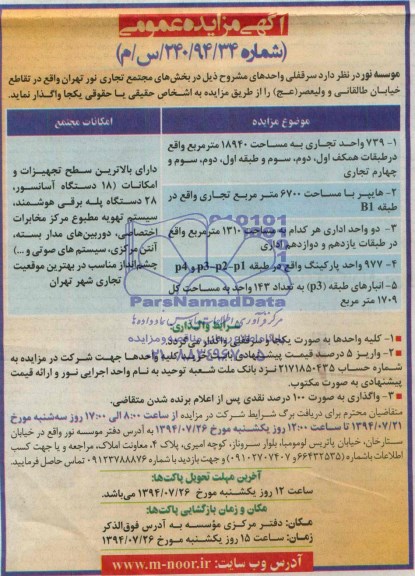 آگهی مزایده عمومی
(شماره ۲۴۰/۹۴/۳۴/س/م)
موسسه نور در نظر دارد سرقفلی واحدهای مشروح ذیل در بخش‌های مجتمع تجاری نور تهران واقع در تقاطع
خیابان طالقانی و ولیعصر(عج) را از طریق مزایده به اشخاص حقیقی یا حقوقی یکجا واگذار نماید.
موضوع مزایده
امکانات مجتمع
۱- ۷۳۹ واحد تجاری به مساحت ۱۸۹۴۰ مترمربع واقع
درطبقات همکف اول، دوم، سوم و طبقه اول، دوم، سوم و
چهارم تجاری
۲- هایپر با مساحت ۶۷۰۰ متر مربع تجاری واقع در
طبقه B1
۳- دو واحد اداری هر کدام به مساحت ۱۳۱۰ مترمربع واقع
در طبقات یازدهم و دوازدهم اداری
۴- ۹۷۷ واحد پارکینگ واقع در طبقه p1-p2-p3 و p4
۵- انبارهای طبقه (p3) به تعداد ۱۴۳ واحد به مساحت کل
۱۷۰۹ متر مربع
دارای بالاترین سطح تجهیزات و
امکانات (۱۸ دستگاه آسانسور،
۲۸ دستگاه پله برقی هوشمند،
سیستم تهویه مطبوع مرکز مخابرات
اختصاصی، دوربین‌های مدار بسته،
آنتن مرکزی، سیستم های صوتی و ...)
چشم‌انداز مناسب در بهترین موقعیت
تجاری شهر تهران
ParsNamadData
شرایط واگذاری:
۱- کلیه واحدها به صورت یکجا و سرقفلی واگذار می‌گردد.
۲- واریز ۵ درصد قیمت پیشنهادی بابت خرید کلیه واحدها جهت شرکت در مزایده به
شماره حساب ۲۱۷۱۸۵۰۴۳۵ نزد بانک ملت شعبه توحید به نام واحد اجرایی نور و ارائه قیمت
پیشنهادی به صورت مکتوب.
۳- واگذاری به صورت ۱۰۰ درصد نقدی پس از اعلام برنده شدن متقاضی.
متقاضیان محترم برای دریافت برگ شرایط شرکت در مزایده از ساعت ۸:۰۰ الی ۱۷:۰۰ روز سه‌شنبه مورخ
۱۳۹۴/۰۷/۲۱ تا ساعت ۱۲:۰۰ روز یکشنبه مورخ ۱۳۹۴/۰۷/۲۶ به آدرس دفتر موسسه نور واقع در خیابان
ستارخان، خیابان پاتریس لومومبا، بلوار سروناز، کوچه امیری، پلاک ۴، معاونت املاک، مراجعه و یا جهت کسب
اطلاعات باشماره (۶۶۴۳۲۵۳۵ و ۰۹۱۰۲۷۰۷۴۰۷) و جهت بازدید با شماره ۰۹۱۲۳۷۸۸۸۷۶ تماس حاصل فرمایید.
آخرین مهلت تحویل پاکت‌ها:
ساعت ۱۲ روز یکشنبه مورخ ۱۳۹۴/۰۷/۲۶ می‌باشد.
مکان و زمان بازگشایی پاکت‌ها:
مکان: دفتر مرکزی مؤسسه به آدرس فوق‌الذکر
زمان: ساعت ۱۵ روز یکشنبه مورخ ۱۳۹۴/۰۷/۲۶
آدرس وب سایت: www.m-noor.ir